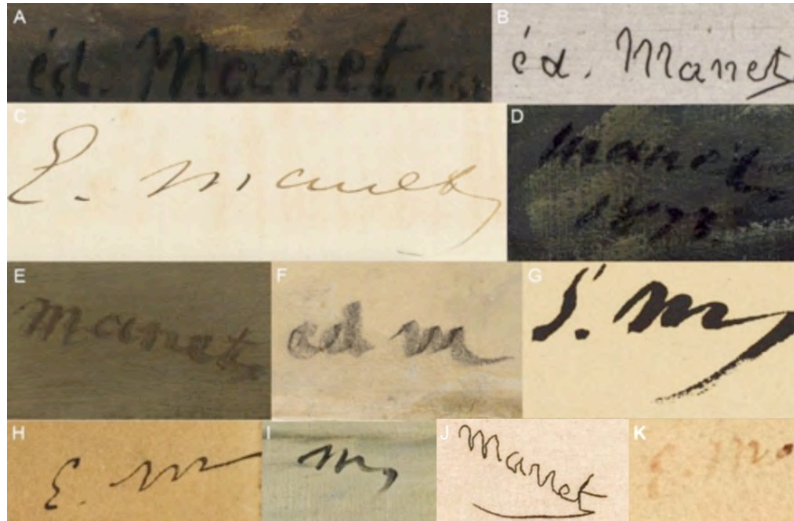 A
éd. Manet
B
éd. Manet
C
E. Manet
D
manet
E
manet
F
éd m
G
é. m
H
E. m
I
m
J
manet
K
E. M.